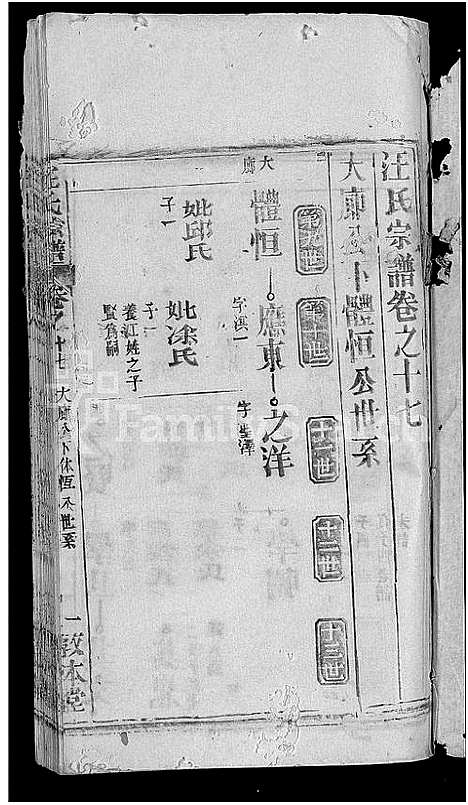 汪氏宗譜卷之十七
大廊公下體恒公世系
第九世
第十世
十一世
十二世
十三世
大廊
體恒
應東
之洋
字淇一
妣邱氏
子一
妣凃氏
子一
養江姓之子
賢為嗣
汪氏宗譜
卷之十七
大廊公下体恒公世系
一
敦本堂
FamilySearch